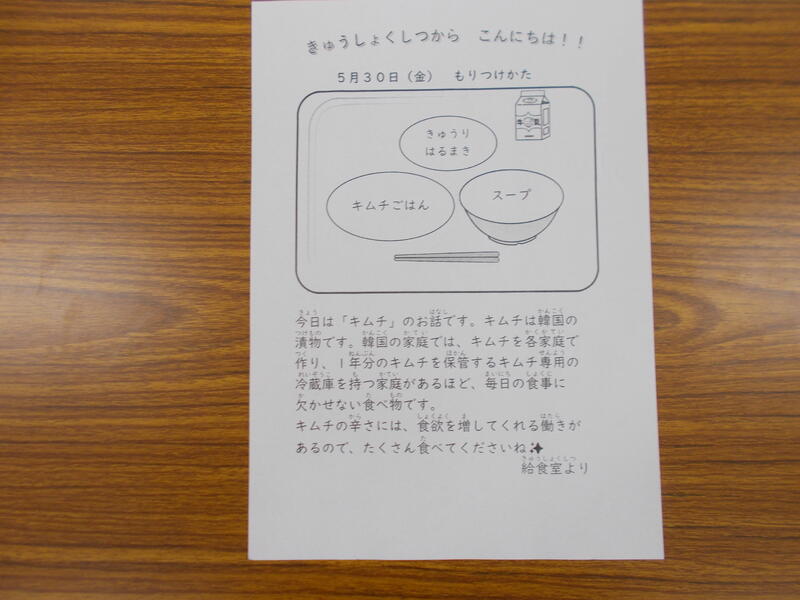 きゅうしょくしつから　こんにちは！！
５月３０日（金）　もりつけかた
牛乳
きゅうり
はるまき
キムチごはん
スープ
今日は「キムチ」のお話です。キムチは韓国の
漬物です。韓国の家庭では、キムチを各家庭で
作り、１年分のキムチを保管するキムチ専用の
冷蔵庫を持つ家庭があるほど、毎日の食事に
欠かせない食べ物です。
キムチの辛さには、食欲を増してくれる働きが
あるので、たくさん食べてくださいね✨
給食室より